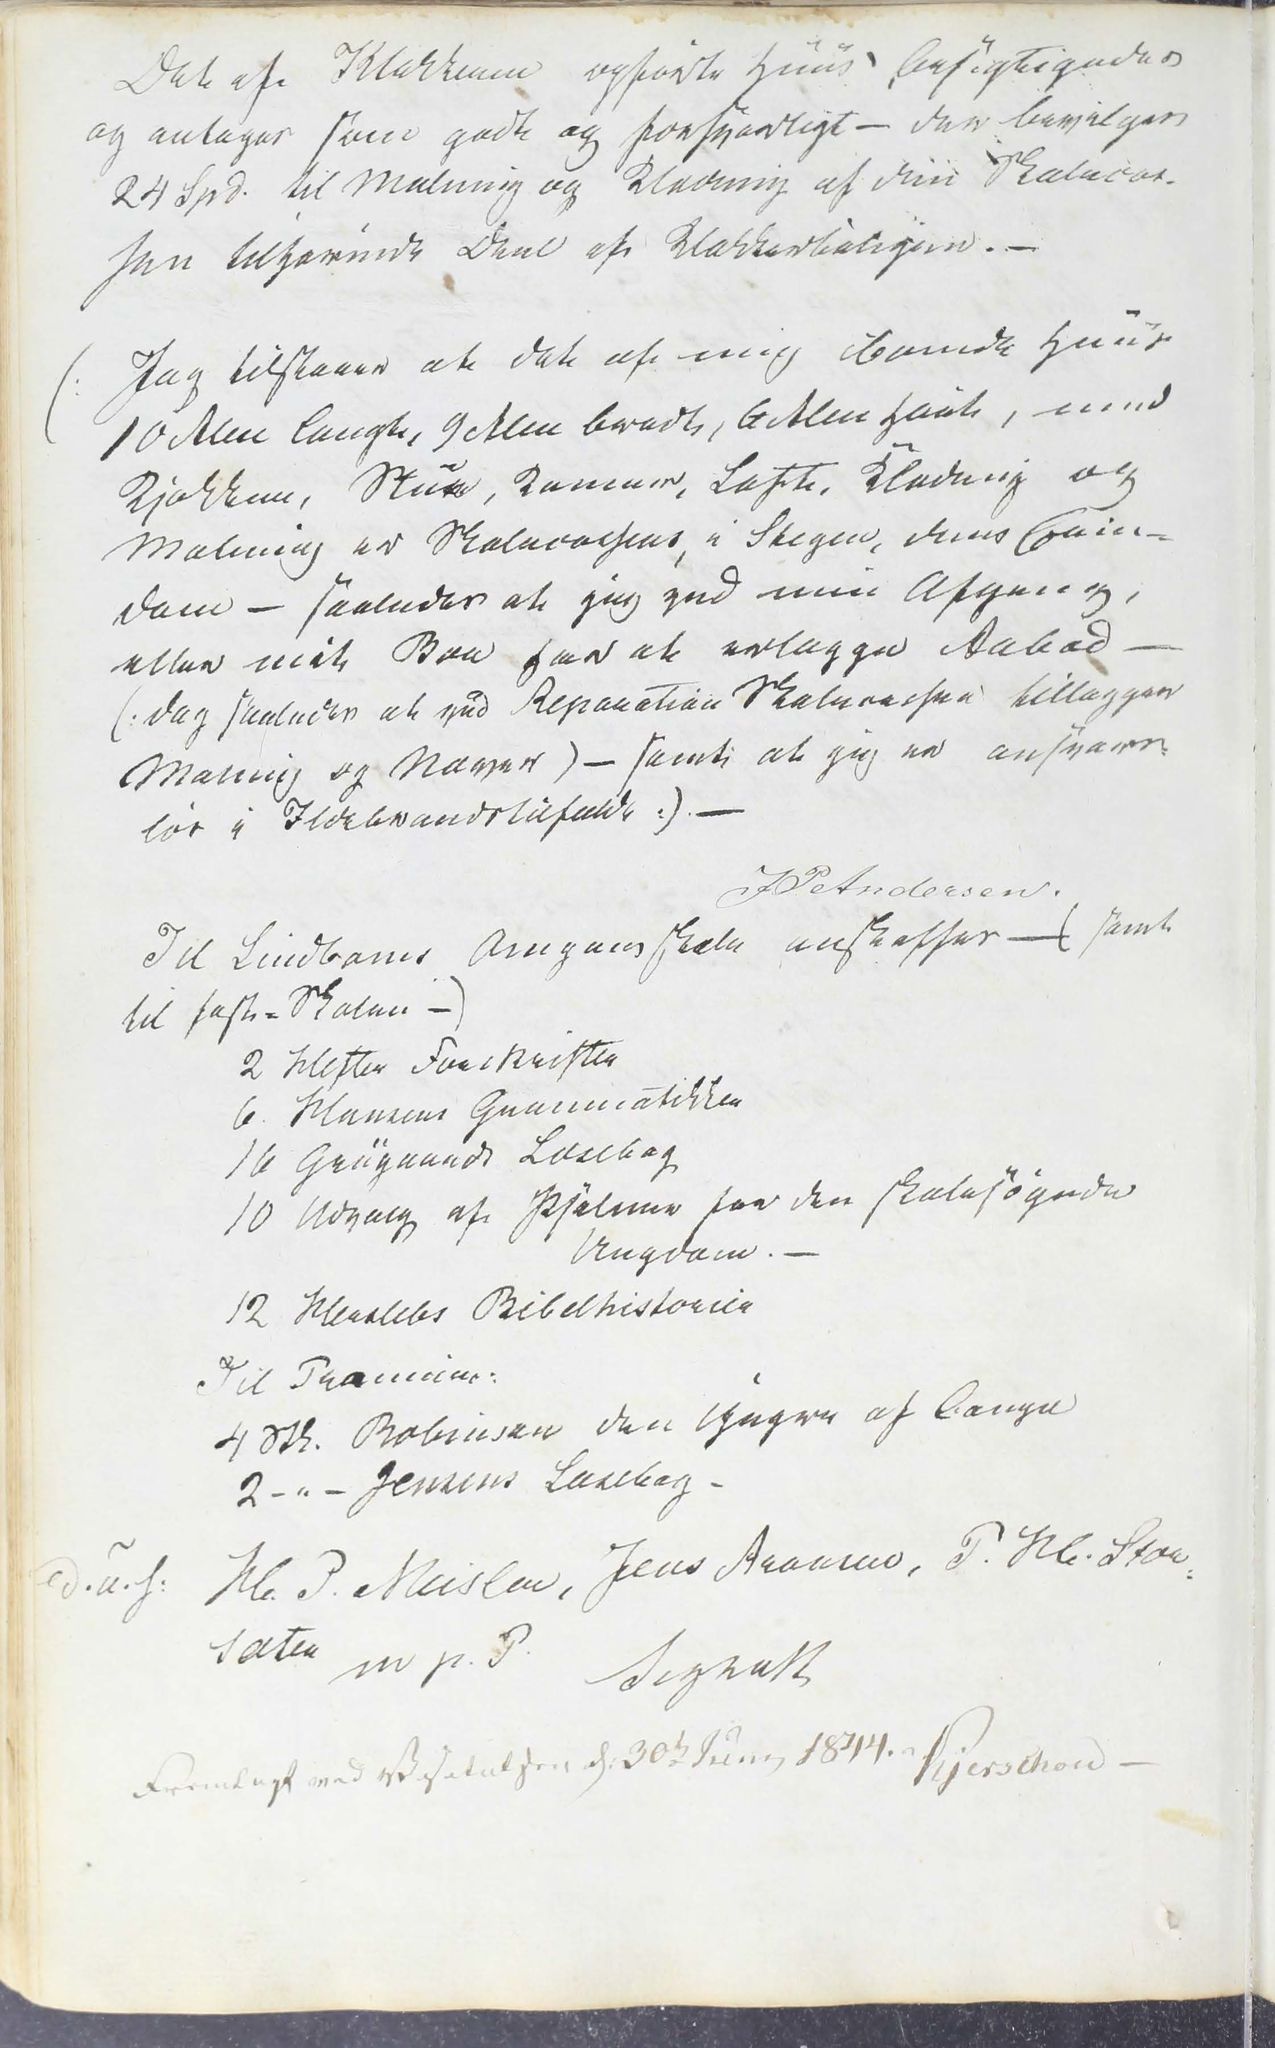 Det af Klokkeren opførte Huus besigtigedes
og antoges som godt og forsvarligt — der bevilges
24 Spd. til Malning og Klædning af den Skolecas-
sen tilhørende Deel af Klokkerboligen. —
(: Jeg tilstaaer at det af mig iboende Huus
10 Alen langt, 9 Alen bredt, 6 Alen høit, med
Kjøkken, Stue, Kammer, Loft, Klædning og
Malning er Skolecassens, i Stegen, dens Eien-
dom — saaledes at jeg ved min Afgang,
eller mit Boe har at erlægge Aabod —
(: dog saaledes at ved Reparation Skolecassen tillægger
Malning og Næver) — samt at jeg er ansvars-
løs i Ildebrandstilfælde :). —
J P Andersen.
Til Lindboms Omgangsskole anskaffes — ( samt
til fast-Skolen —)
2 Hefter Forskrifter
6 Hansens Grammatikker
16 Grøgaards Læsebog
10 Udvalg af Psalmer for den skolesøgende
Ungdom. —
12 Herslebs Bibelhistorier
Til Præmier:
4 Stk. Robinson den Yngere af Campe
2 -"- Jensens Læsebog -
d. u. s: H. P. Meisler, Jens Aronsen, P. H. Stor-
sæter m p. P.
Fremlagt ved Visitatsen d. 30te Juny 1844. Kjerschow —